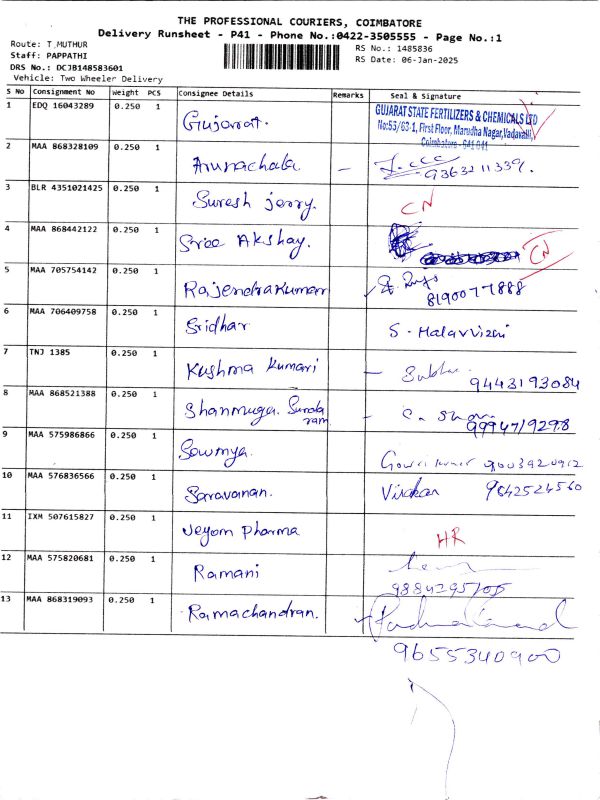 THE PROFESSIONAL COURIERS, COIMBATORE
Delivery Runsheet - P41 - Phone No.:0422-3505555 - Page No.:1
Route: T.MUTHUR
RS No.: 1485836
Staff: PAPPATHI
RS Date: 06-Jan-2025
DRS No.: DCJB148583601
Vehicle: Two Wheeler Delivery
S No Consignment No Weight PCS Consignee Details Remarks Seal & Signature
1 EDQ 16043289 0.250 1 Gujarat.
GUJARAT STATE FERTILIZERS & CHEMICALS LTD
No:53/63-1, First Floor, Marudha Nagar, Vadavalli,
Coimbatore - 641 041
2 MAA 868328109 0.250 1 Arunachala. - 9363211339.
3 BLR 4351021425 0.250 1 Suresh jerry. CN
4 MAA 868442122 0.250 1 Sree Akshay. CN
5 MAA 705754142 0.250 1 Rajendrakumar
8190077888
6 MAA 706409758 0.250 1 Sridhar S. Malarvizhi
7 TNJ 1385 0.250 1 Kushma Kumari - 9443193084
8 MAA 868521388 0.250 1 Shanmuga Sunda
ram. - 9994719298
9 MAA 575986866 0.250 1 Sowmya. 9003920912
10 MAA 576836566 0.250 1 Saravanan. 9842524560
11 IXM 507615827 0.250 1 Veyom Pharma HR
12 MAA 575820681 0.250 1 Ramani
9884295105
13 MAA 868319093 0.250 1 Ramachandran.
9655340900